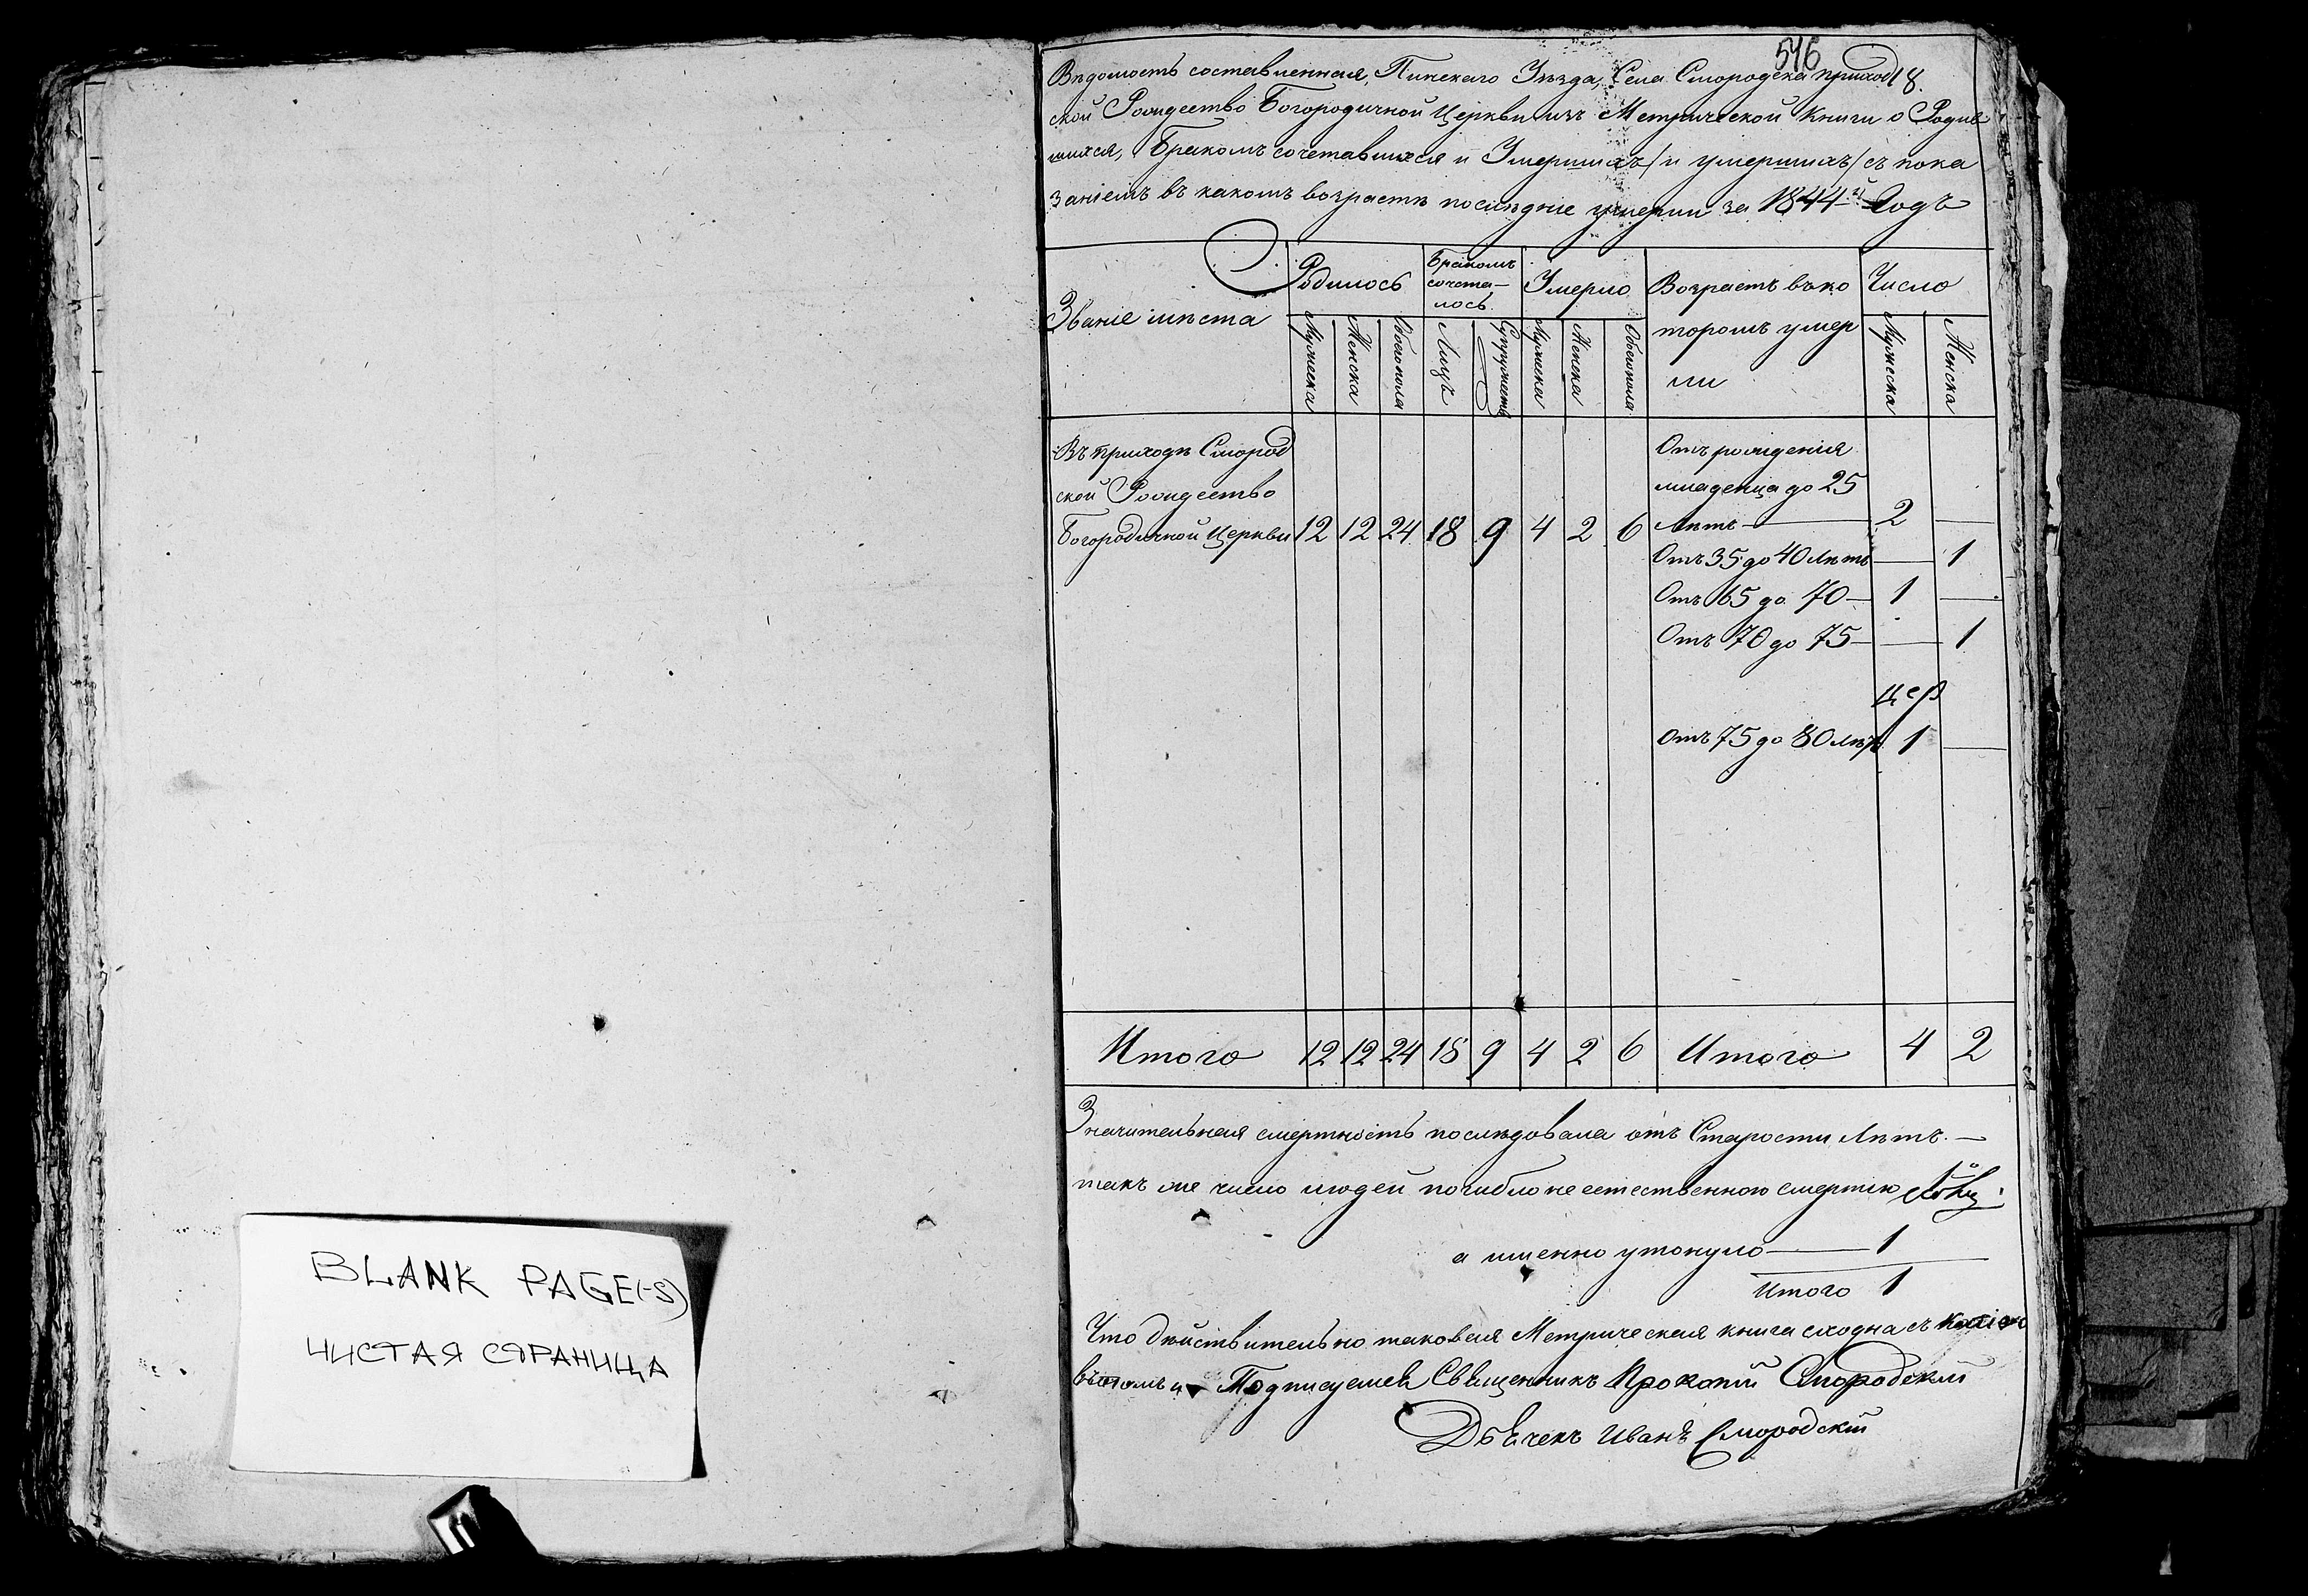 BLANK PAGE(-S)
ЧИСТАЯ СТРАНИЦА
516
18.
Вѣдомость составленная, Пинскаго Уѣзда, Села Смородска приход
ской Рождество Богородичной Церкви изъ Метрической Книги о Родив
шихся, Бракомъ сочетавшихся и Умершихъ /и умершихъ/ съ пока
заніемъ въ какомъ возрастѣ послѣдніе умерли за 1844й Годъ
Званіе мѣста
Родилось
Бракомъ
сочета-
лось
Умерло
Возрастъ въ ко
торомъ умер
ли
Число
Мужеска
Женска
Обоего пола
Лицъ
Супружествъ
Мужеска
Женска
Обоего пола
Мужеска
Женска
Въ приходѣ Смород
ской Рождество
Богородичной Церкви 12 12 24 18 9 4 2 6
Отъ рожденія
младенца до 25
Лѣтъ — 2 —
Отъ 35 до 40 Лѣтъ — 1
Отъ 65 до 70 — 1 —
Отъ 70 до 75 — — 1
Отъ 75 до 80 лѣтъ 1 —
Итого 12 12 24 18 9 4 2 6 Итого 4 2
Значительная смертность послѣдовала отъ Старости Лѣтъ. —
такъ же число людей погибло не естественною смертію
а именно утонуло — 1
Итого 1
Что дѣйствительно таковая Метрическая книга сходна съ копіею
въ томъ и Подписуемся Священникъ Прокопій Смородскій
Дьячекъ Иванъ Смородскій